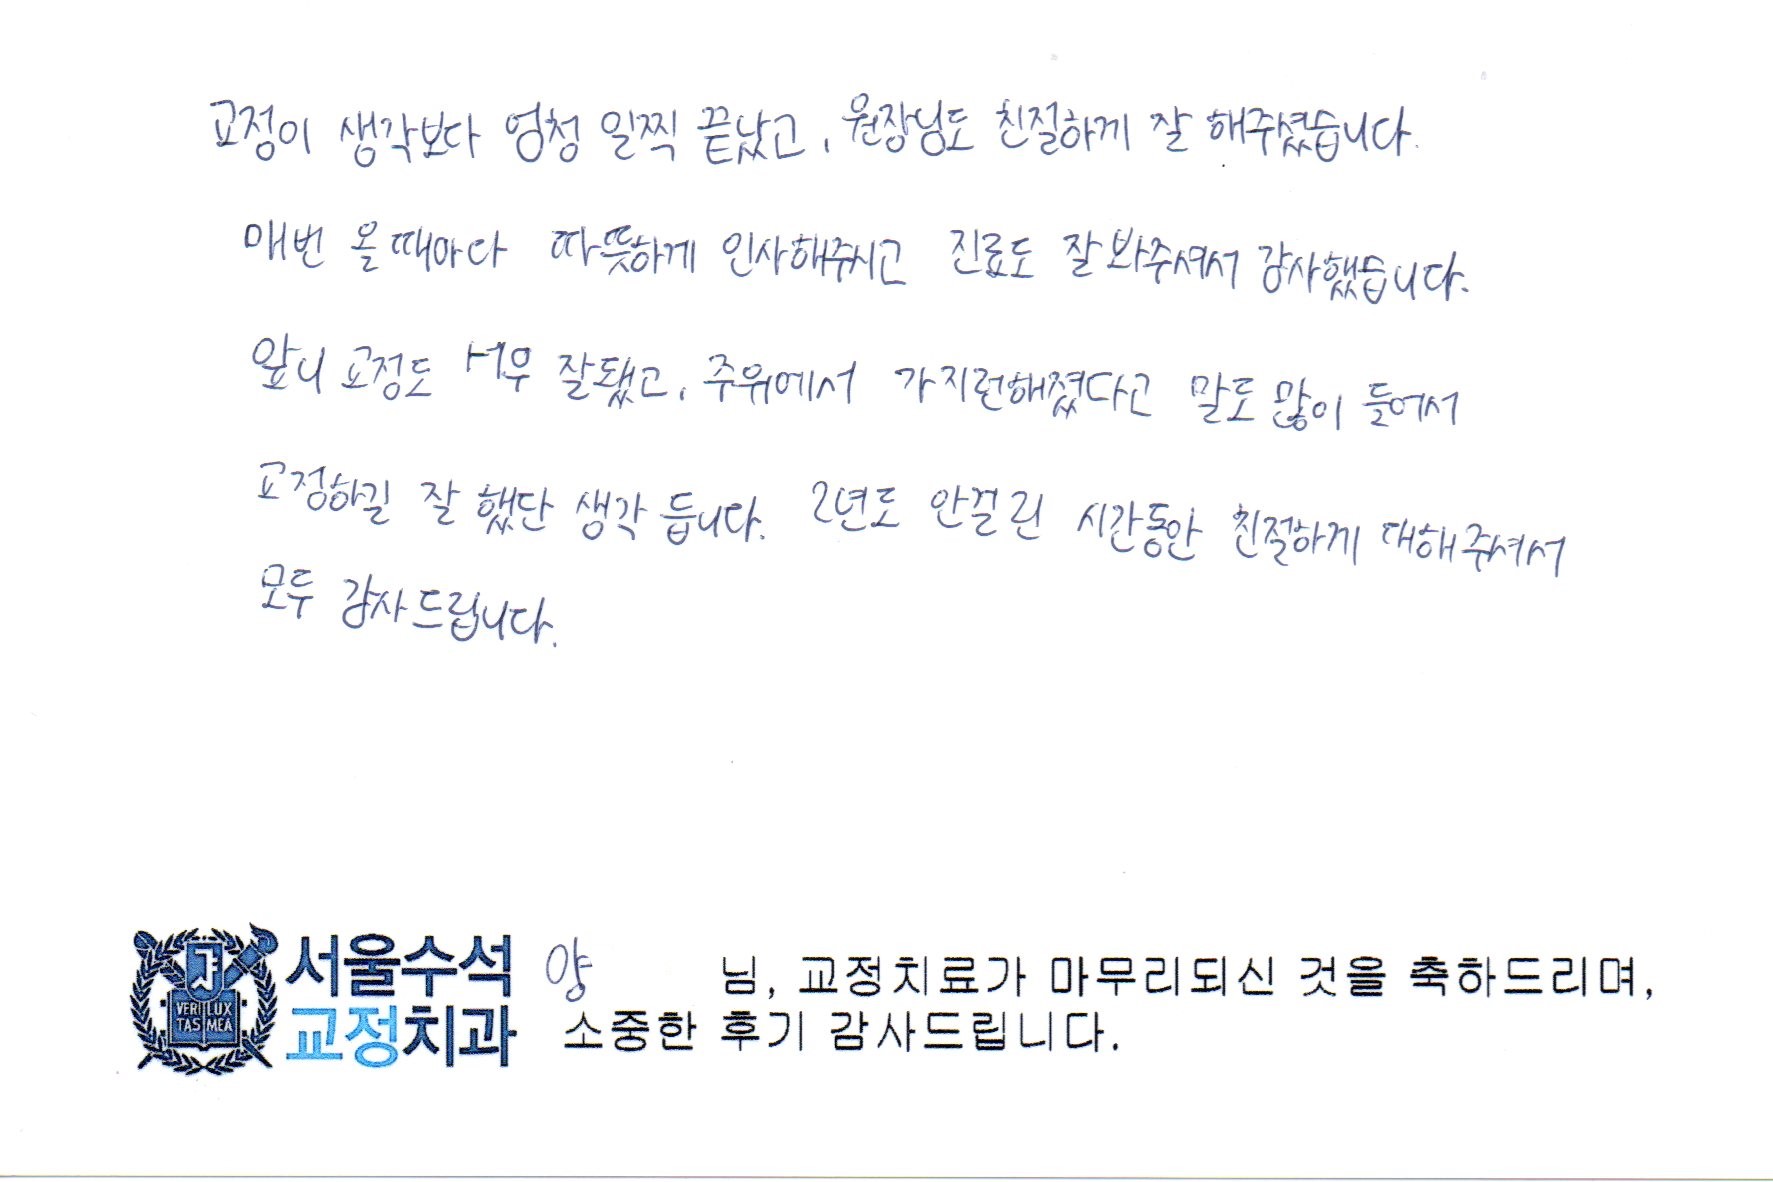 교정이 생각보다 엄청 일찍 끝났고, 원장님도 친절하게 잘 해주셨습니다.
매번 올때마다 따뜻하게 인사해주시고 진료도 잘 봐주셔서 감사했습니다.
앞니 교정도 너무 잘됐고, 주위에서 가지런해졌다고 말도 많이 들어서
교정하길 잘 했단 생각 듭니다. 2년도 안걸린 시간동안 친절하게 대해주셔서
모두 감사드립니다.
서울수석 양 님, 교정치료가 마무리되신 것을 축하드리며,
교정치과 소중한 후기 감사드립니다.
VERI LUX
TAS MEA